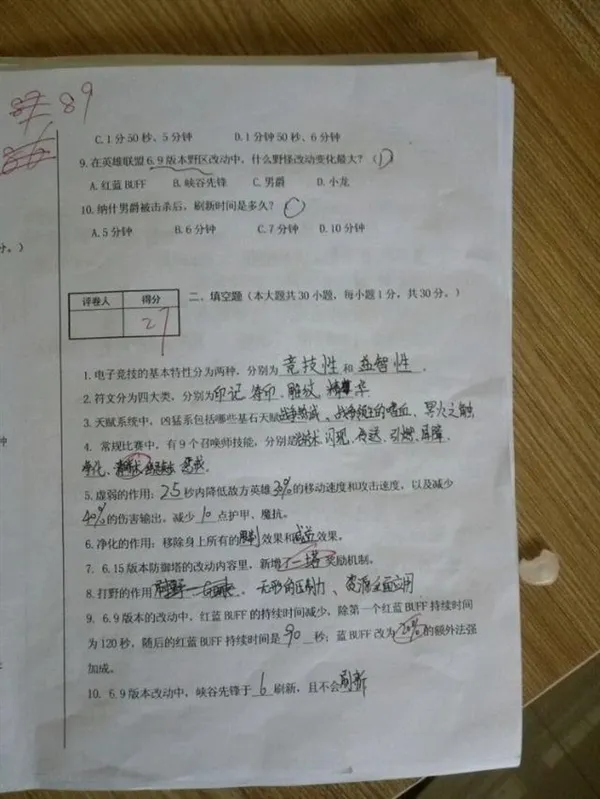 87 89
86
C.1分50秒、5分钟 D.1分钟50秒、6分钟
9.在英雄联盟6.9版本野区改动中，什么野怪改动变化最大？（D）
A.红蓝BUFF B.峡谷先锋 C.男爵 D.小龙
10.纳什男爵被击杀后，刷新时间是多久？（C）
A.5分钟 B.6分钟 C.7分钟 D.10分钟
分。）
评卷人 得分
27
二、填空题（本大题共30小题，每小题1分，共30分。）
1.电子竞技的基本特性分为两种，分别为 竞技性 和 益智性 .
2.符文分为四大类，分别为印记、符印、雕纹、精华
3.天赋系统中，凶猛系包括哪些基石天赋战争热诚、战争领主的嗜血、冥火之触
4. 常规比赛中，有9个召唤师技能，分别是治疗术、闪现、传送、引燃、屏障、
净化、清晰术 惩戒
钟
5.虚弱的作用：2.5秒内降低敌方英雄30%的移动速度和攻击速度，以及减少
40%的伤害输出，减少 10 点护甲、魔抗。
6.净化的作用：移除身上所有的限制效果和减益效果。
7. 6.15版本防御塔的改动内容里，新增了一塔奖励机制。
8.打野的作用 无形的压制力、资源全面应用
9. 6.9版本的改动中，红蓝BUFF的持续时间减少，除第一个红蓝BUFF持续时间
为120秒，随后的红蓝BUFF持续时间是 90 秒；蓝BUFF改为20%的额外法强
加成。
10. 6.9版本改动中，峡谷先锋于 6 刷新，且不会刷新